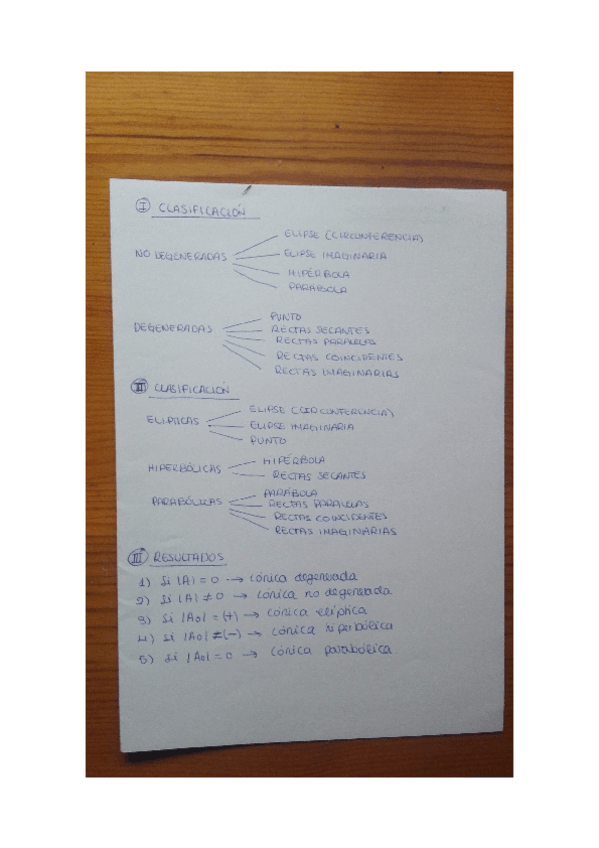 I CLASIFICACIÓN
ELIPSE (CIRCONFERENCIA)
NO DEGENERADAS
ELIPSE IMAGINARIA
HIPÉRBOLA
PARÁBOLA
PUNTO
DEGENERADAS
RECTAS SECANTES
RECTAS PARALELAS
RECTAS COINCIDENTES
RECTAS IMAGINARIAS
II CLASIFICACIÓN
ELIPSE (CIRCONFERENCIA)
ELIPTICAS
ELIPSE IMAGINARIA
PUNTO
HIPÉRBOLA
HIPERBÓLICAS
RECTAS SECANTES
PARÁBOLA
PARABÓLICAS
RECTAS PARALELAS
RECTAS COINCIDENTES
RECTAS IMAGINARIAS
III RESULTADOS
1) Si |A| = 0 → cónica degenerada
2) Si |A| ≠ 0 → cónica no degenerada
3) Si |Ao| = (+) → cónica elíptica
4) Si |Ao| = (-) → cónica hiperbólica
5) Si |Ao| = 0 → cónica parabólica